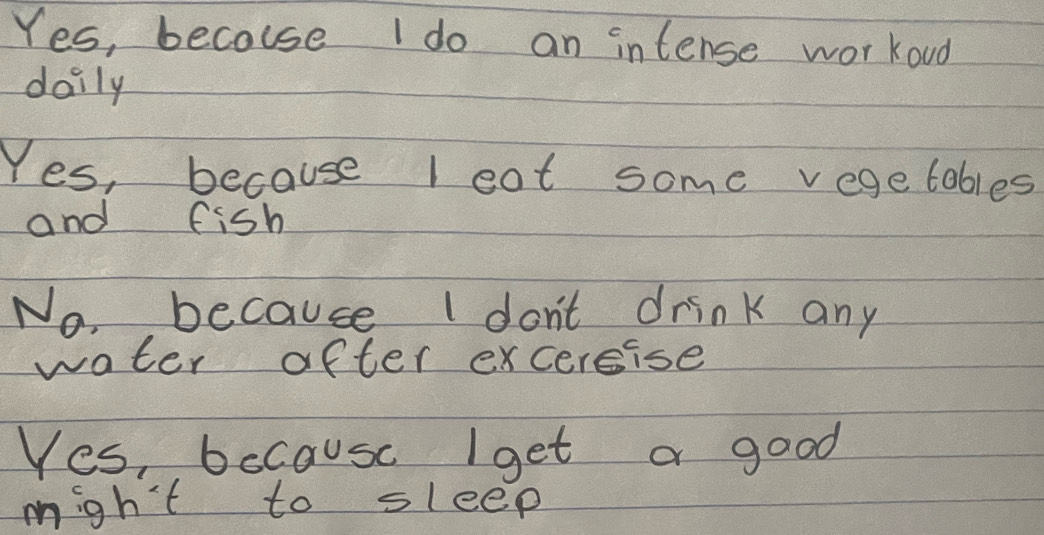 Yes, becouse I do an intense workoud
daily
Yes, because I eat some vegetables
and fish
No, because I don't drink any
water after excersise
Yes, because I get a good
migh't to sleep